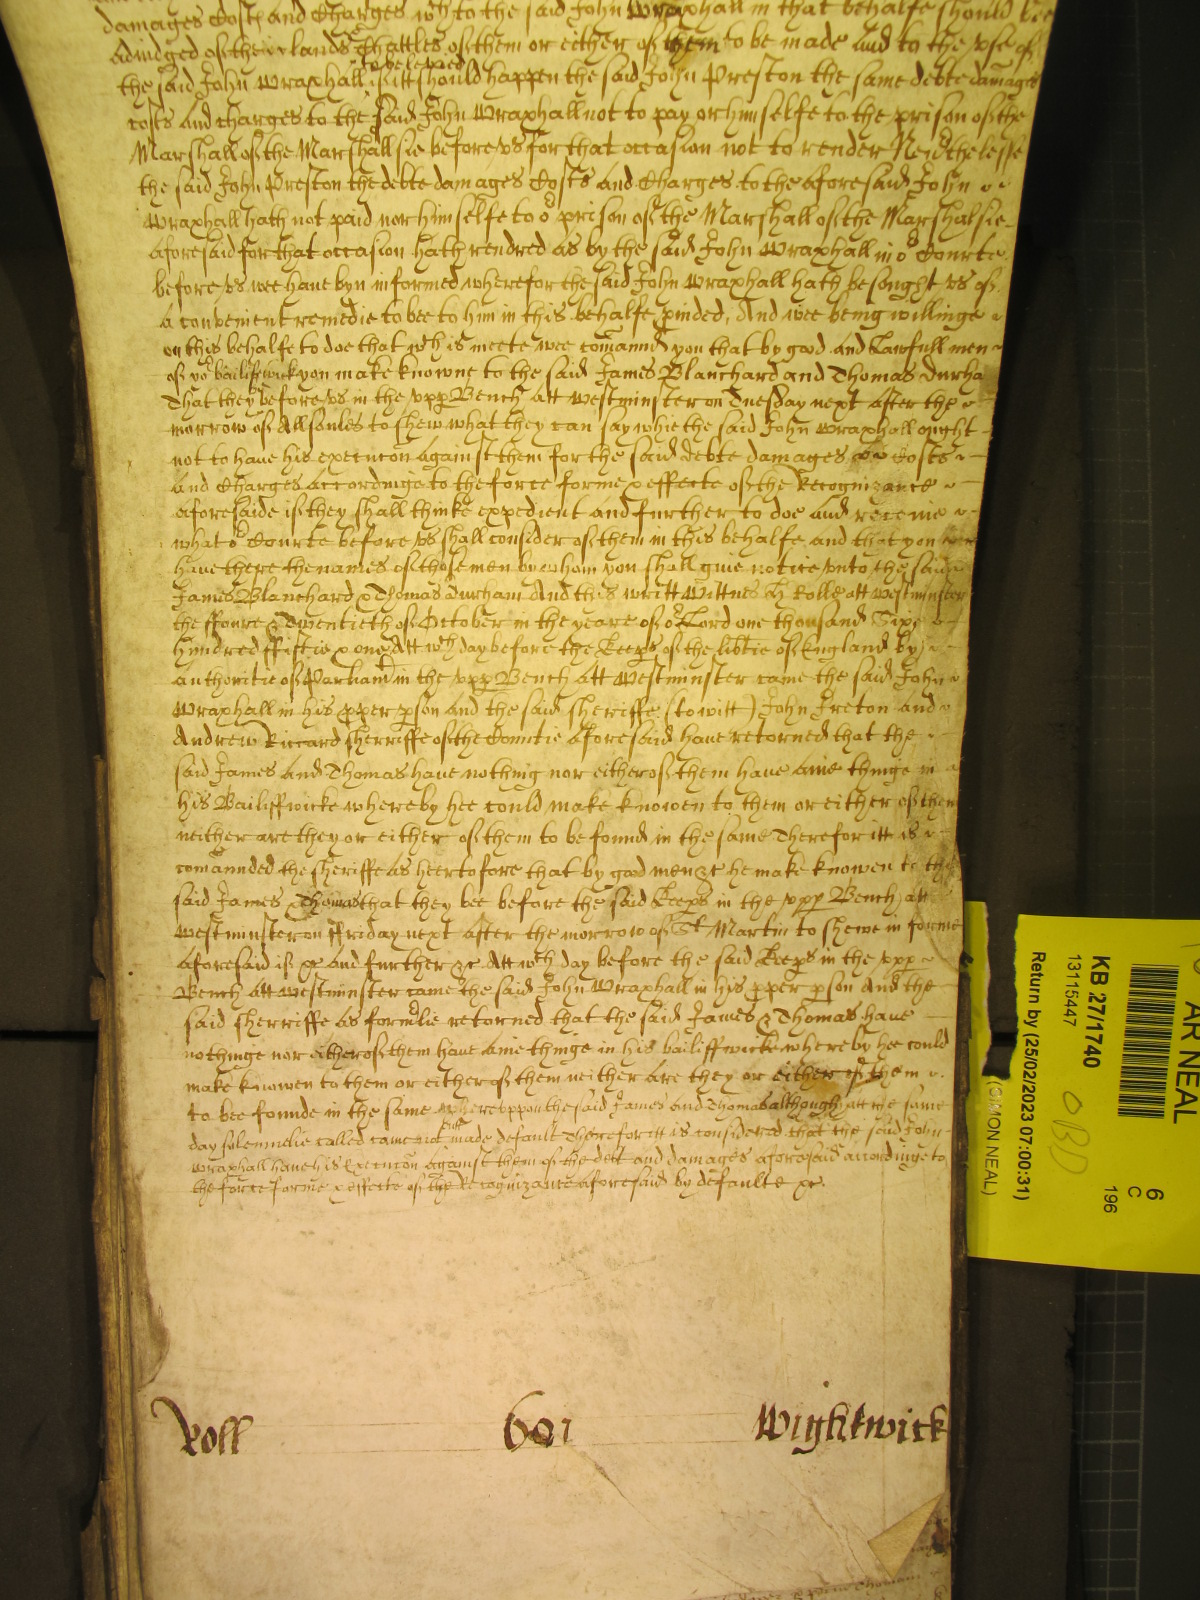 damages Costs and Charges wch to the said John Wraxhall in that behalfe should bee
Adiudged of their lands & Chattles of them or either of them to be made and to the vse of
the said John Wraxhall to be levyed if itt should happen the said John Preston the same debte damages
costs and charges to the said John Wraxhall not to pay or himselfe to the prison of the
Marshall of the Marshallsie before vs for that occasion not to render Neuthelesse
the said John Preston the debte damages Costs and Charges to the aforesaid John
Wraxhall hath not paid nor himselfe to or prison of the Marshall of the Marshalsie
aforesaid for that occasion hath rendred as by the said John Wraxhall in or Courte
before vs wee have byn informed wherefor the said John Wraxhall hath besought vs of
a convenient remedie to bee to him in this behalfe pvided, And wee being willinge
on this behalfe to doe that wch is meete wee comannd you that by good and Lawfull men
of yor bailiffwick you make knowne to the said James Blanchard and Thomas Durha
That they before vs in the vpp Bench att Westminster on Tuesday next after the
morrow of All soules to shew what they can say whie the said John Wraxhall ought
not to have his execucon against them for the said debte damages Costs
and Charges accordinge to the force forme & effecte of the Recognizance
aforesaide if they shall thinke expedient and further to doe and receive
what or Courte before vs shall consider of them in this behalfe and that you
have there the names of those men by whom you shall give notice vnto the said
James Blanchard & Thomas Durham And this writt Wittnes H Rolle att Westminster
the ffoure & Twentieth of October in the yeare of or Lord one thousand Six
hundred ffiftie & one Att wch day before the Keeps of the libtie of England by
authoritie of Parliamt in the vpp Bench att Westminster came the said John
Wraxhall in his pper pson and the said sheriffe (to witt) John Ireton and
Andrew Riccard sherriffe of the Countie aforesaid have retorned that the
said James and Thomas have nothing nor either of them have anie thinge in
his Bailiffwicke whereby hee could make knowen to them or either of them
neither are they or either of them to be found in the same Therefor itt is
comannded the sheriffe as heertofore that by good men &c he make knowen to the
said James & Thomas that they bee before the said Keeps in the vpp Bench att
Westminster on ffriday next after the morrow of St Martin to shewe in forme
aforesaid if &c and further &c Att wch day before the said Keeps in the vpp
Bench att Westminster came the said John Wraxhall in his pper pson And the
said sherriffe as formlie retorned that the said James & Thomas have
nothinge nor either of them have anie thinge in his bailiffwicke whereby hee could
make knowen to them or either of them neither are they or either of them
to bee founde in the same Whereuppon the said James and Thomas although att the same
day solemnelie called came not but made default Therefor itt is considered that the said John
Wraxhall have his Execucon against them of the debt and damages aforesaid accordinge to
the force forme & effecte of the Recognizance aforesaid by defaulte &c.
Roll 601 Wightwick
AR NEAL
6
C
196
KB 27/1740
13115447
OBD
Return by (25/02/2023 07:00:31)
(SIMON NEAL)